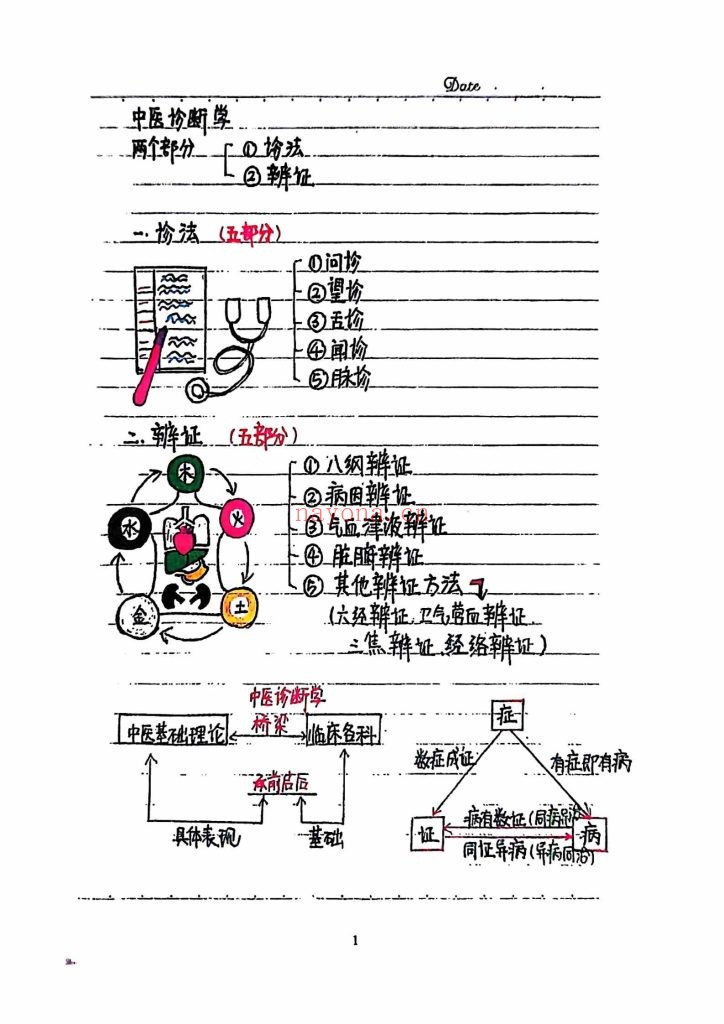 Date
中医诊断学
两个部分 ① 诊法
② 辨证
一.诊法 (五部分)
①问诊
②望诊
③舌诊
④闻诊
⑤脉诊
二.辨证 (五部分)
① 八纲辨证
② 病因辨证
nayona.cn
③ 气血津液辨证
④ 脏腑辨证
⑤ 其他辨证方法
(六经辨证、卫气营血辨证、
三焦辨证、经络辨证)
木
火
土
金
水
中医诊断学
中医基础理论 桥梁 临床各科
承前启后
具体表现 基础
症
数症成证 有症即有病
病有数证(同病异治)
证 病
同证异病(异病同治)
1